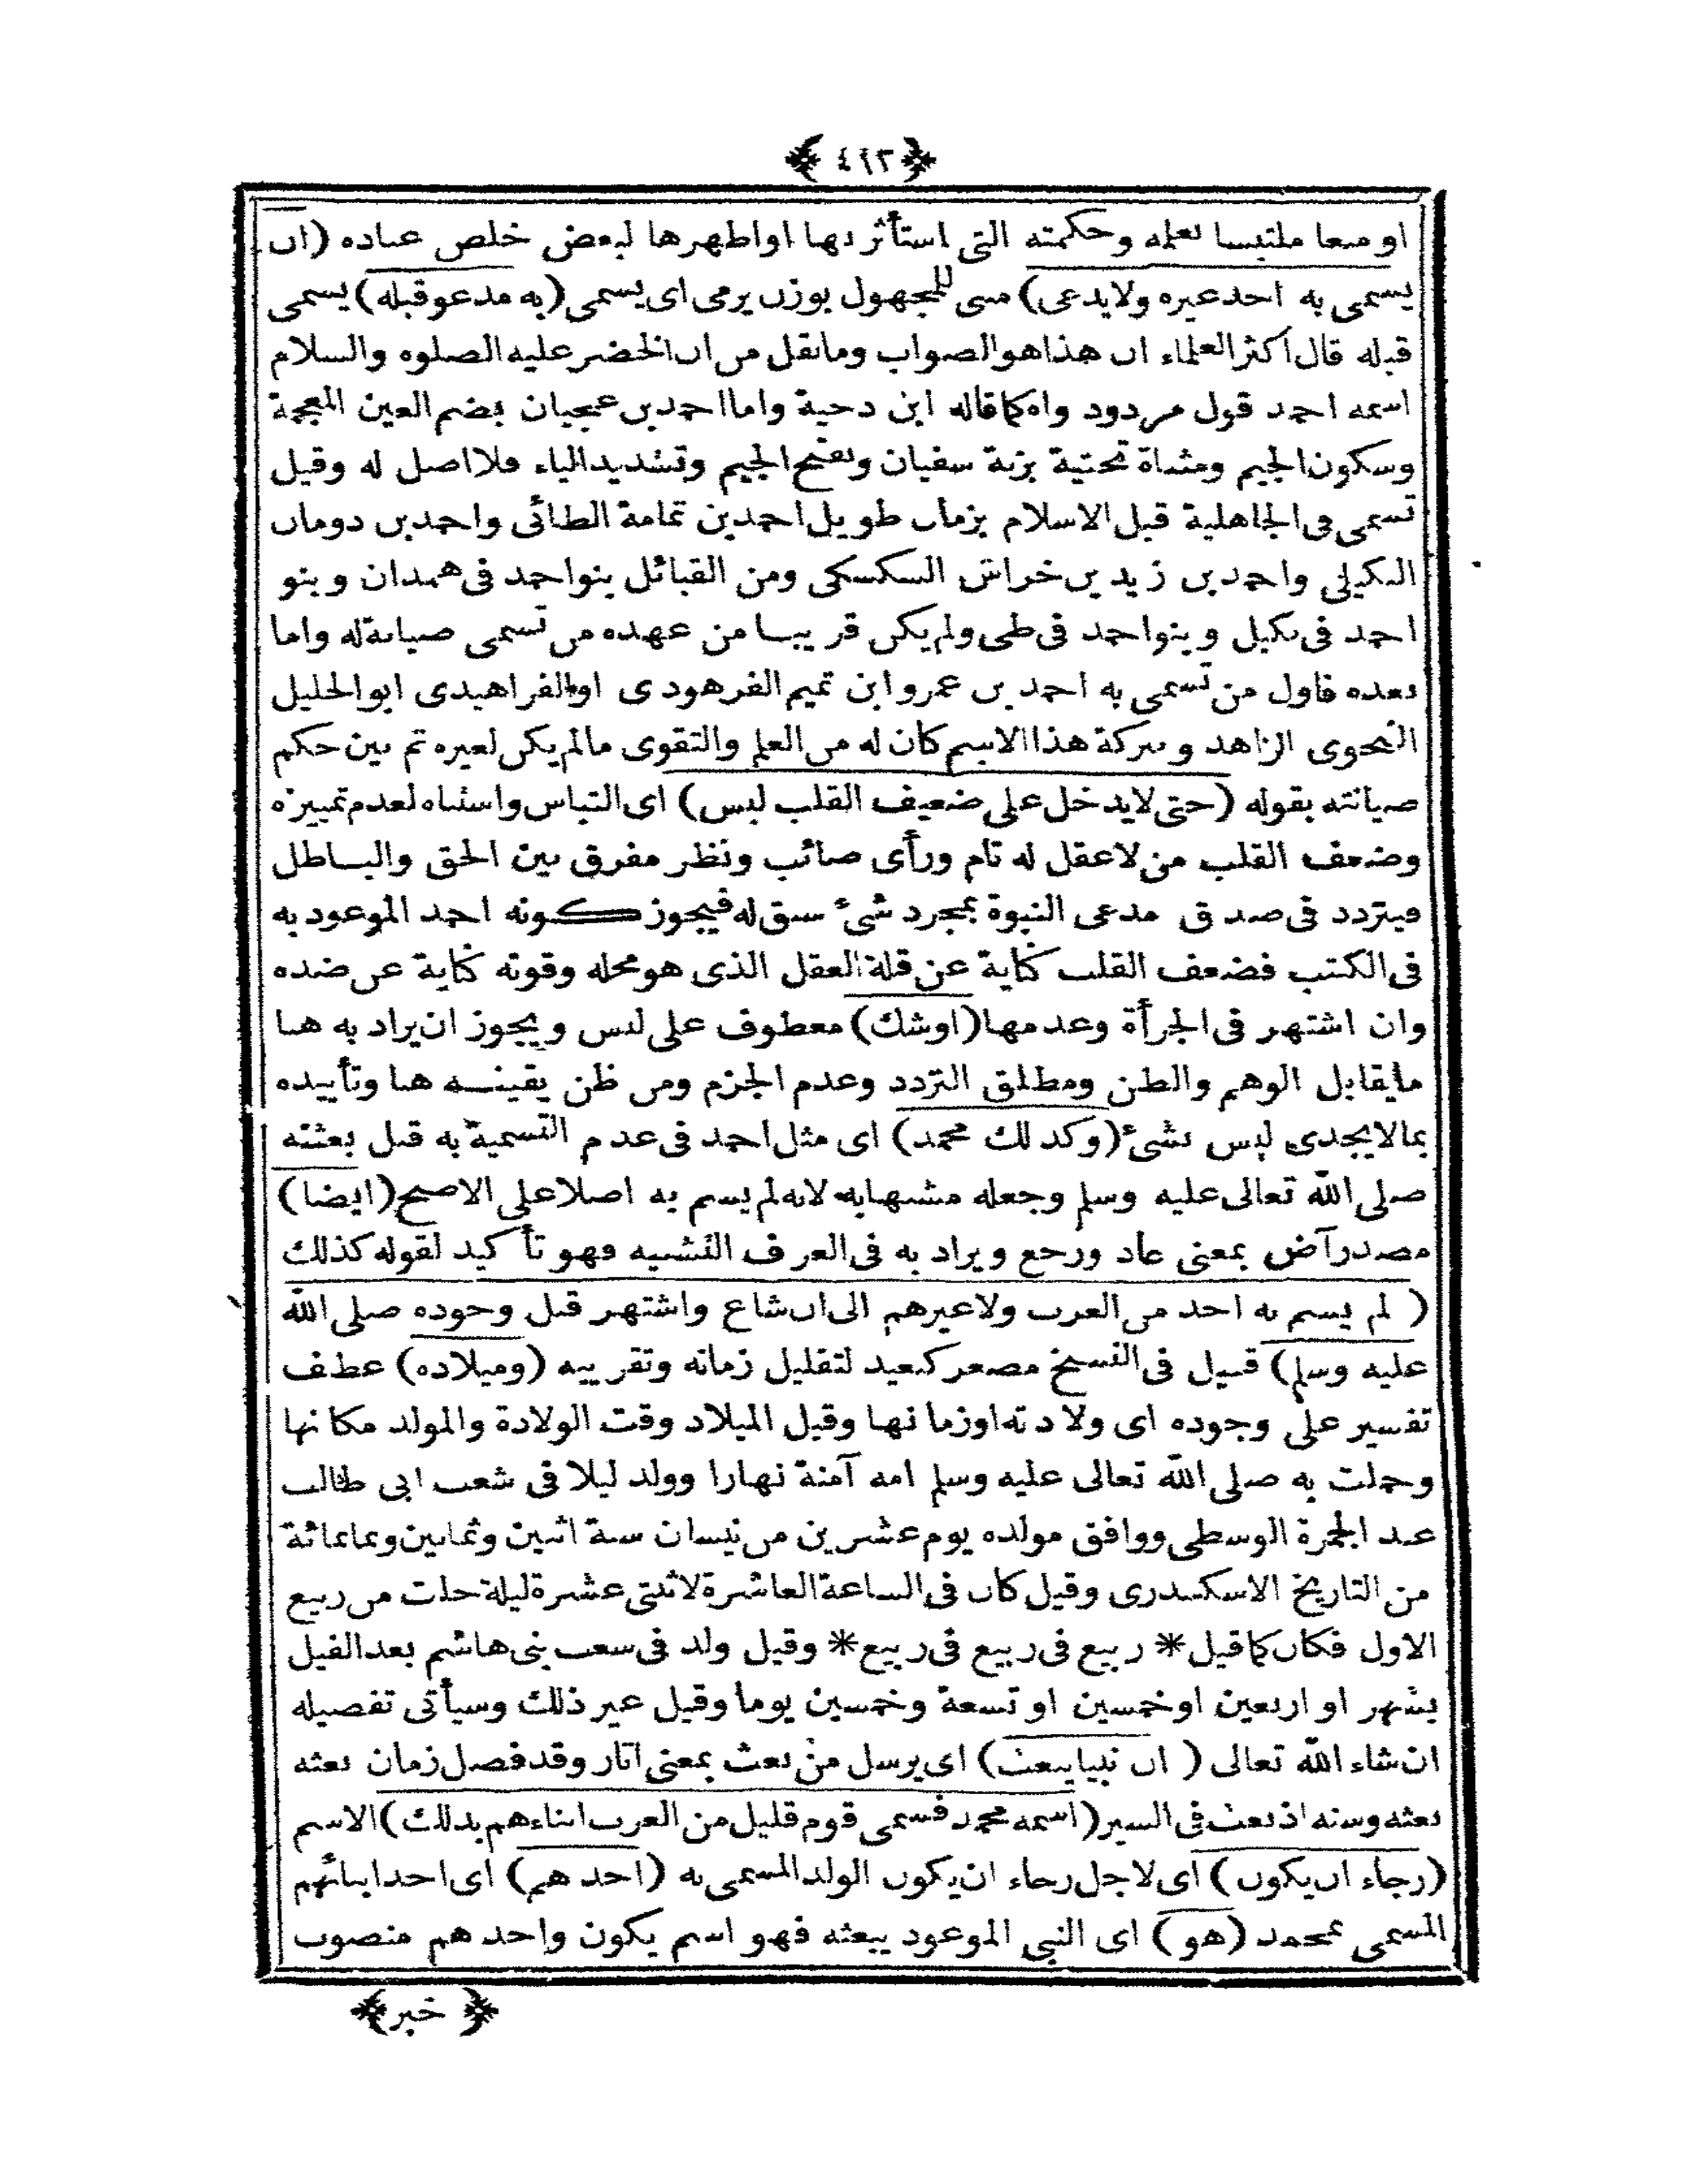 ﴿ ٤١٣ ﴾
او منعا ملتبسا بعلمه وحكمته التى استأثر بها او اظهرها لبعض خلص عباده (ان
يسمى به احد غيره ولا يدعى) مبنى للمجهول بوزن يرمى اى يسمى (به مدعو قبله) يسمى
قبله قال اكثر العلماء ان هذا هو الصواب وما نقل من ان الخضر عليه الصلوه والسلام
اسمه احمد قول مردود واه كما قاله ابن دحية واما احمد بن عجيان بضم العين المعجمة
وسكون الجيم ومثناة تحتية بزنة سفيان وبفتح الجيم وتشديد الياء فلا اصل له وقيل
تسمى فى الجاهلية قبل الاسلام بزمان طويل احمد بن ثمامة الطائى واحمد بن دومان
البكيلى واحمد بن زيد بن خراش السكسكى ومن القبائل بنو احمد فى همدان وبنو
احمد فى بكيل وبنو احمد فى طى ولم يكن قريبا من عهده من تسمى صيانة له واما
بعده فاول من تسمى به احمد بن عمرو ابن تميم الفرهودى او الفراهيدى ابو الخليل
النحوى الزاهد وببركة هذا الاسم كان له من العلم والتقوى مالم يكن لغيره ثم بين حكم
صيانته بقوله (حتى لا يدخل على ضعيف القلب لبس) اى التباس واشتباه لعدم تمييزه
وضعف القلب من لا عقل له تام ورأى صائب ونظر مفرق بين الحق والباطل
فيتردد فى صدق مدعى النبوة بمجرد شئ سبق له فيجوز كونه احمد الموعود به
فى الكتب فضعف القلب كناية عن قلة العقل الذى هو محله وقوته كناية عن ضده
وان اشتهر فى الجرأة وعدمها (او شك) معطوف على لبس ويجوز ان يراد به هنا
ما يقابل الوهم والظن ومطلق التردد وعدم الجزم ومن ظن يقينه هنا وتأييده
بما لا يجدى ليس بشئ (وكذلك محمد) اى مثل احمد فى عدم التسمية به قبل بعثته
صلى الله تعالى عليه وسلم وجعله مشبها به لانه لم يسم به اصلا على الاصح (ايضا)
مصدر آض بمعنى عاد ورجع ويراد به فى العرف التشبيه فهو تأكيد لقوله كذلك
( لم يسم به احد من العرب ولا غيرهم الى ان شاع واشتهر قبل وجوده صلى الله
عليه وسلم) قبيل فى النسخ مصغر كبعيد لتقليل زمانه وتقريبه (وميلاده) عطف
تفسير على وجوده اى ولادته او زمانها وقيل الميلاد وقت الولادة والمولد مكانها
وحملت به صلى الله تعالى عليه وسلم امه آمنة نهارا وولد ليلا فى شعب ابى طالب
عند الجمرة الوسطى ووافق مولده يوم عشرين من نيسان سنة اثنين وثمانين وثمانمائة
من التاريخ الاسكندرى وقيل كان فى الساعة العاشرة لاثنتى عشرة ليلة خلت من ربيع
الاول فكان كما قيل * ربيع فى ربيع فى ربيع * وقيل ولد فى شعب بنى هاشم بعد الفيل
بشهر او اربعين او خمسين او تسعة وخمسين يوما وقيل غير ذلك وسيأتى تفصيله
ان شاء الله تعالى ( ان نبيا يبعث) اى يرسل من بعث بمعنى اثار وقد فصل زمان بعثه
بعثه وسنه اذ بعث فى السير (اسمه محمد فسمى قوم قليل من العرب ابناءهم بذلك) الاسم
(رجاء ان يكون) اى لاجل رجاء ان يكون الولد المسمى به (احدهم) اى احد ابنائهم
المسمى بمحمد (هو) اى النبى الموعود ببعثه فهو اسم يكون واحدهم منصوب
﴿ خبر ﴾